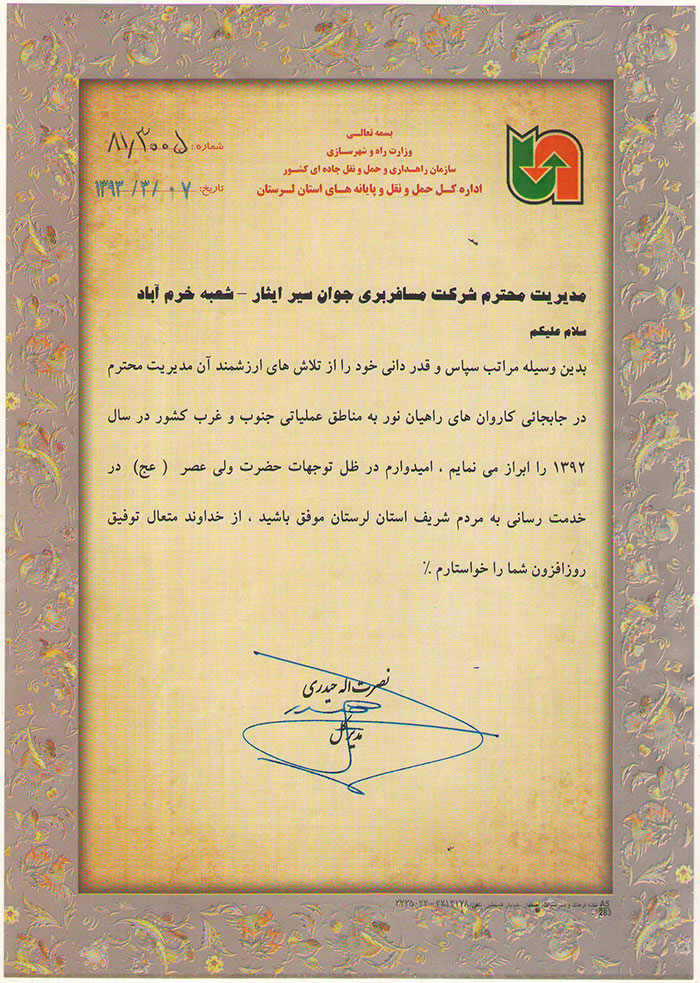 بسمه تعالی
وزارت راه و شهرسازی
سازمان راهداری و حمل و نقل جاده ای کشور
اداره کل حمل و نقل و پایانه های استان لرستان
شماره: ۸۱/۳۰۰۵
تاریخ: ۱۳۹۳/۳/۰۷
مدیریت محترم شرکت مسافربری جوان سیر ایثار - شعبه خرم آباد
سلام علیکم
بدین وسیله مراتب سپاس و قدر دانی خود را از تلاش های ارزشمند آن مدیریت محترم
در جابجائی کاروان های راهیان نور به مناطق عملیاتی جنوب و غرب کشور در سال
۱۳۹۲ را ابراز می نمایم ، امیدوارم در ظل توجهات حضرت ولی عصر ( عج) در
خدمت رسانی به مردم شریف استان لرستان موفق باشید ، از خداوند متعال توفیق
روزافزون شما را خواستارم ٪
نصرت اله حیدری
مدیر کل
A5
283